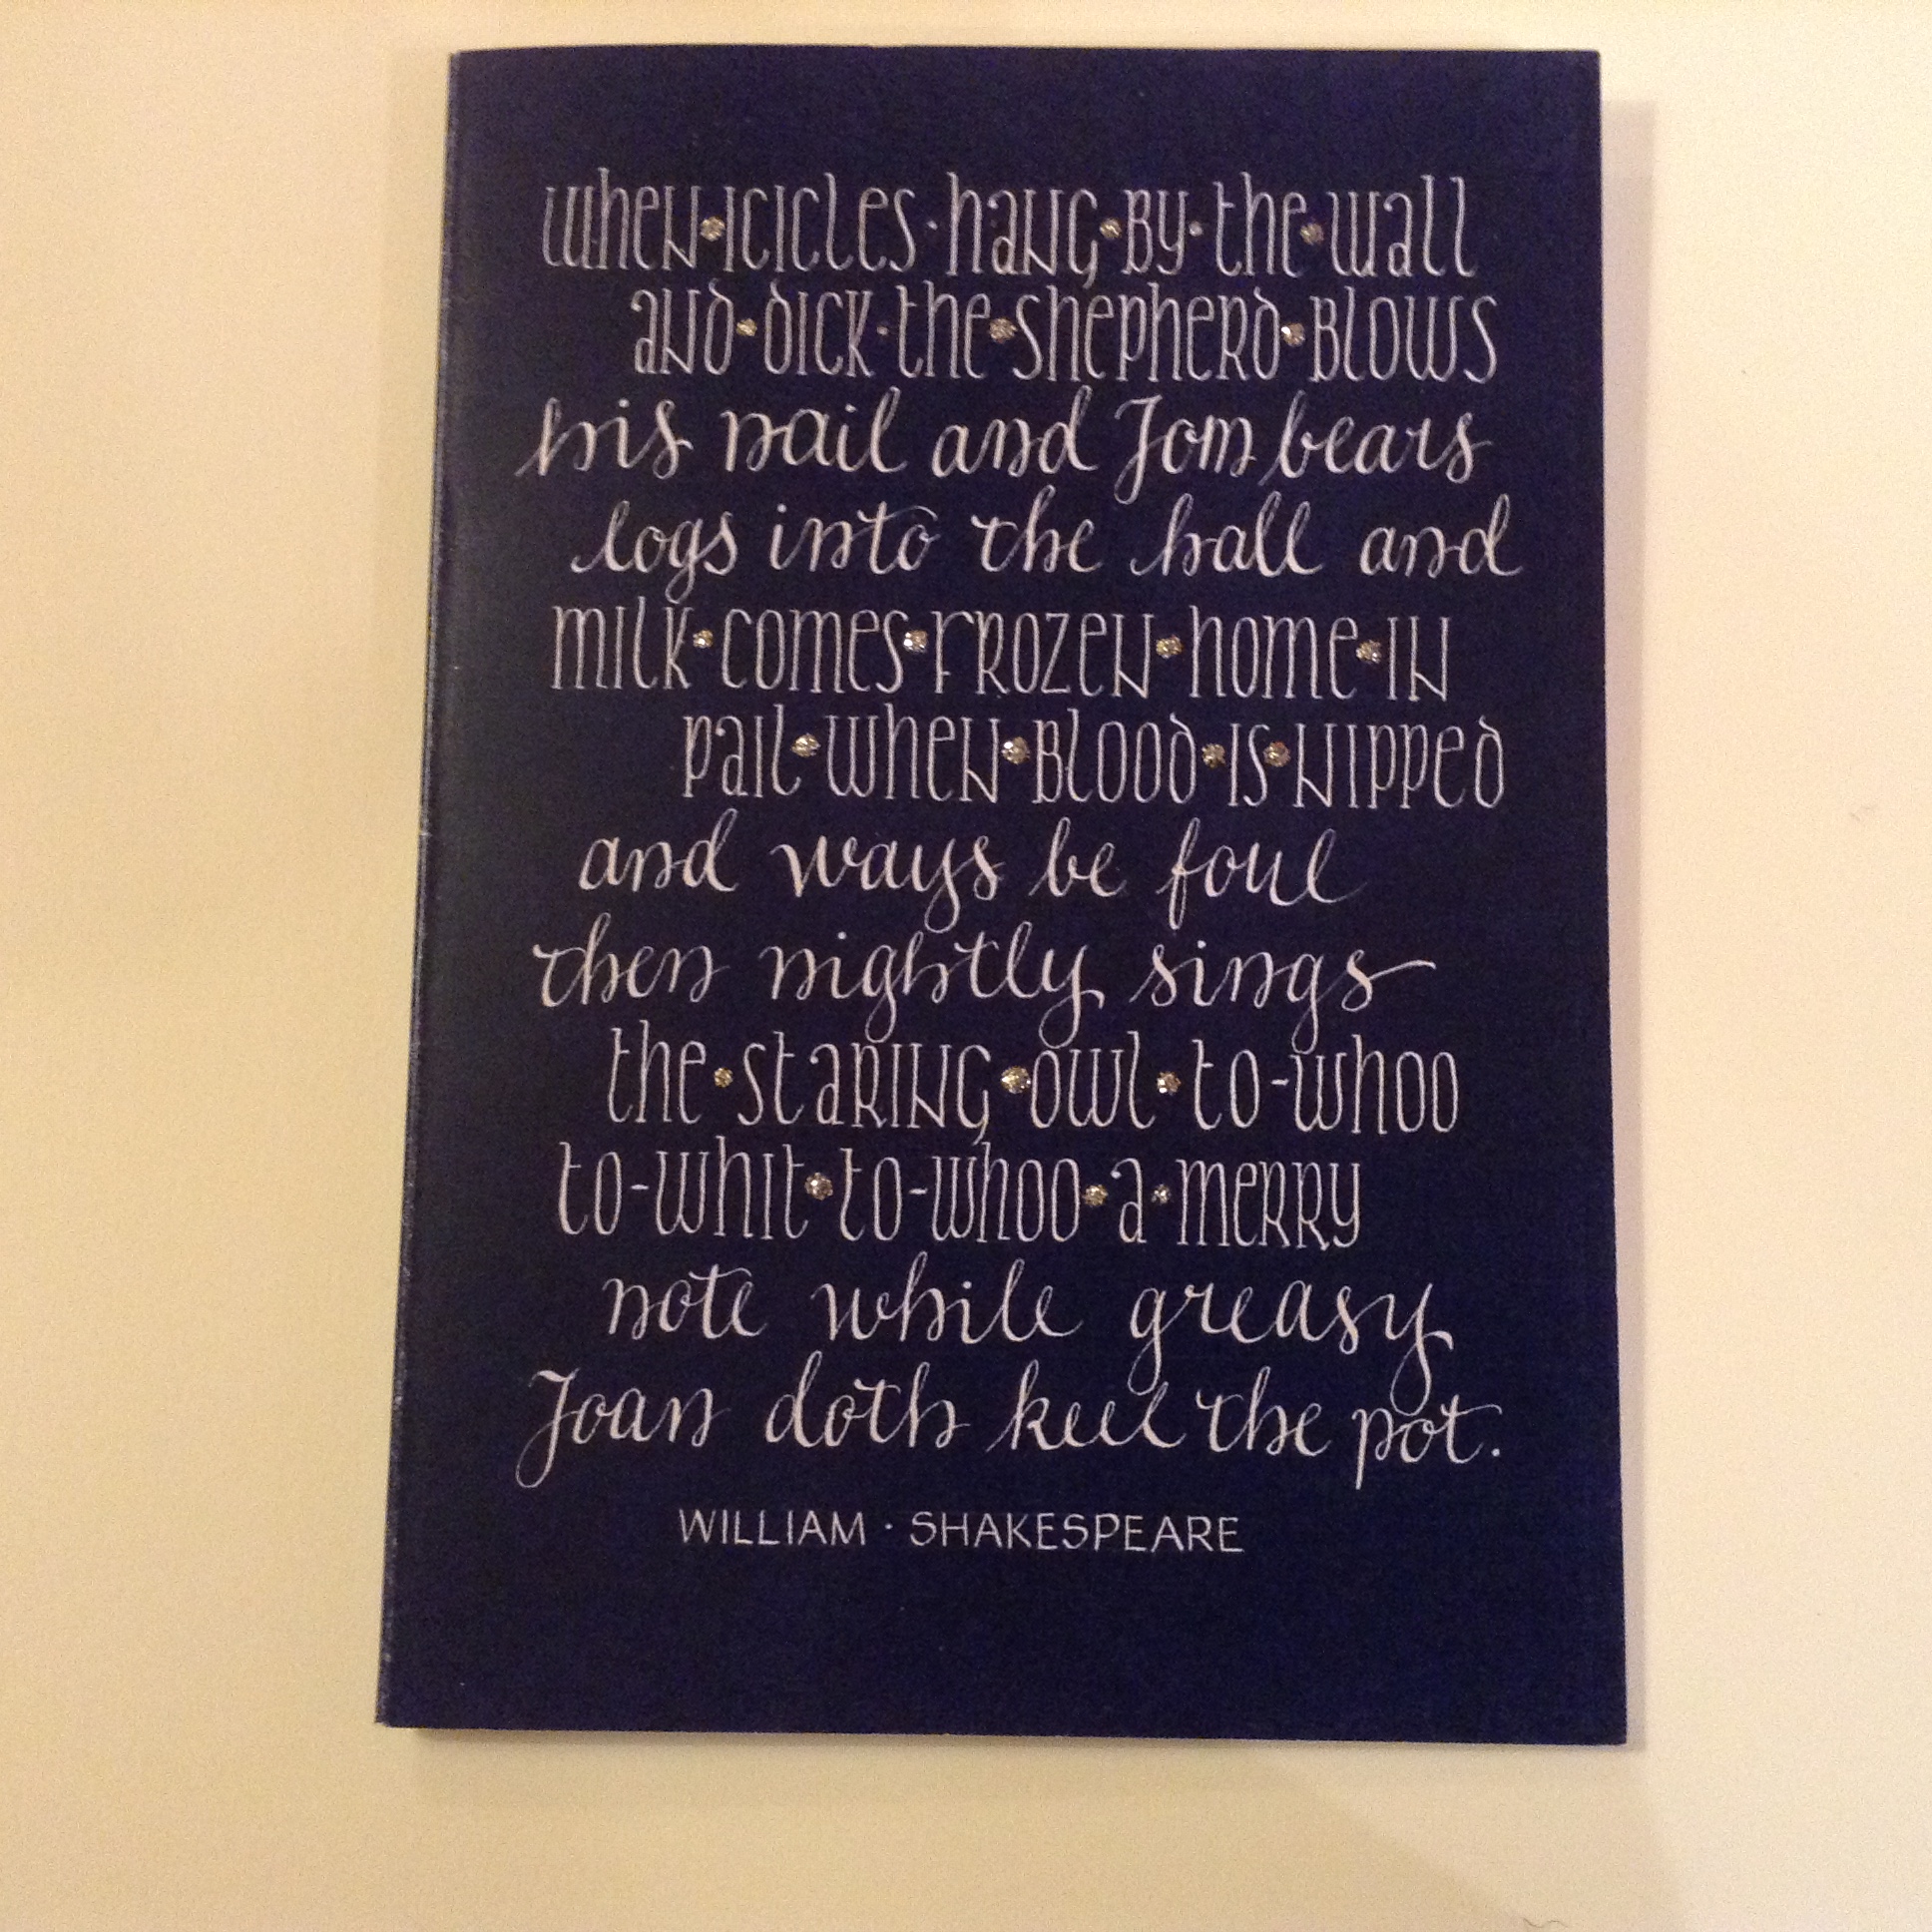 when·icicles·hang·by·the·wall
and·dick·the·shepherd·blows
his nail and Tom bears
logs into the hall and
milk·comes·frozen·home·in
pail·when·blood·is·nipped
and ways be foul
then nightly sings
the·staring·owl·to-whoo
to-whit·to-whoo·a·merry
note while greasy
Joan doth keel the pot.
WILLIAM · SHAKESPEARE